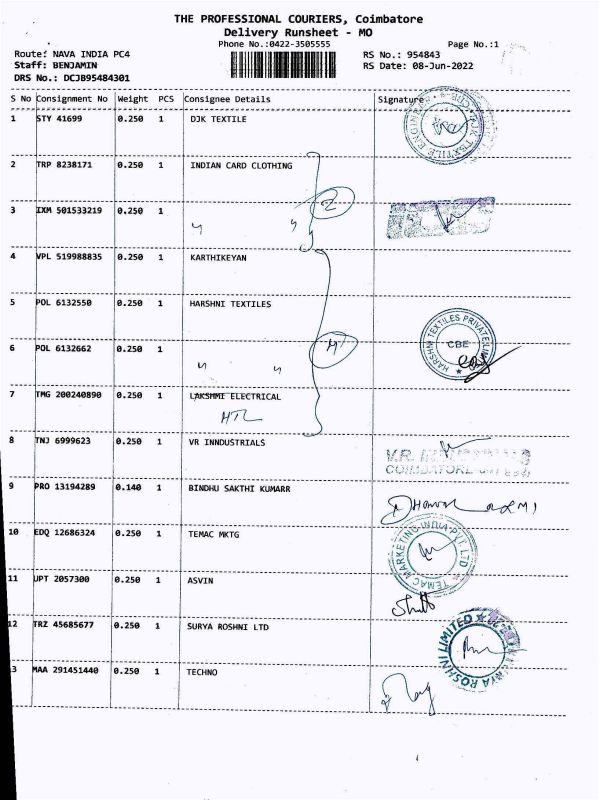 THE PROFESSIONAL COURIERS, Coimbatore
Delivery Runsheet - MO
Phone No.:0422-3505555
Page No.:1
Route: NAVA INDIA PC4
RS No.: 954843
Staff: BENJAMIN
RS Date: 08-Jun-2022
DRS No.: DCJB95484301
S No Consignment No Weight PCS Consignee Details Signature
1 STY 41699 0.250 1 DJK TEXTILE
2 TRP 8238171 0.250 1 INDIAN CARD CLOTHING
3 IXM 501533219 0.250 1
4 VPL 519988835 0.250 1 KARTHIKEYAN
5 POL 6132550 0.250 1 HARSHNI TEXTILES
HARSHNI TEXTILES PRIVATE LIMI
CBE
6 POL 6132662 0.250 1
7 TMG 200240890 0.250 1 LAKSHMI ELECTRICAL
8 TNJ 6999623 0.250 1 VR INNDUSTRIALS
9 PRO 13194289 0.140 1 BINDHU SAKTHI KUMARR
10 EDQ 12686324 0.250 1 TEMAC MKTG
TEMAC MARKETING INDIA PVT LTD
11 UPT 2057300 0.250 1 ASVIN
12 TRZ 45685677 0.250 1 SURYA ROSHNI LTD
ROSHNI LIMITED
3 MAA 291451440 0.250 1 TECHNO